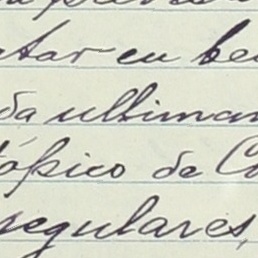 tar en be
da ultimam
tópico de Co
regulares,